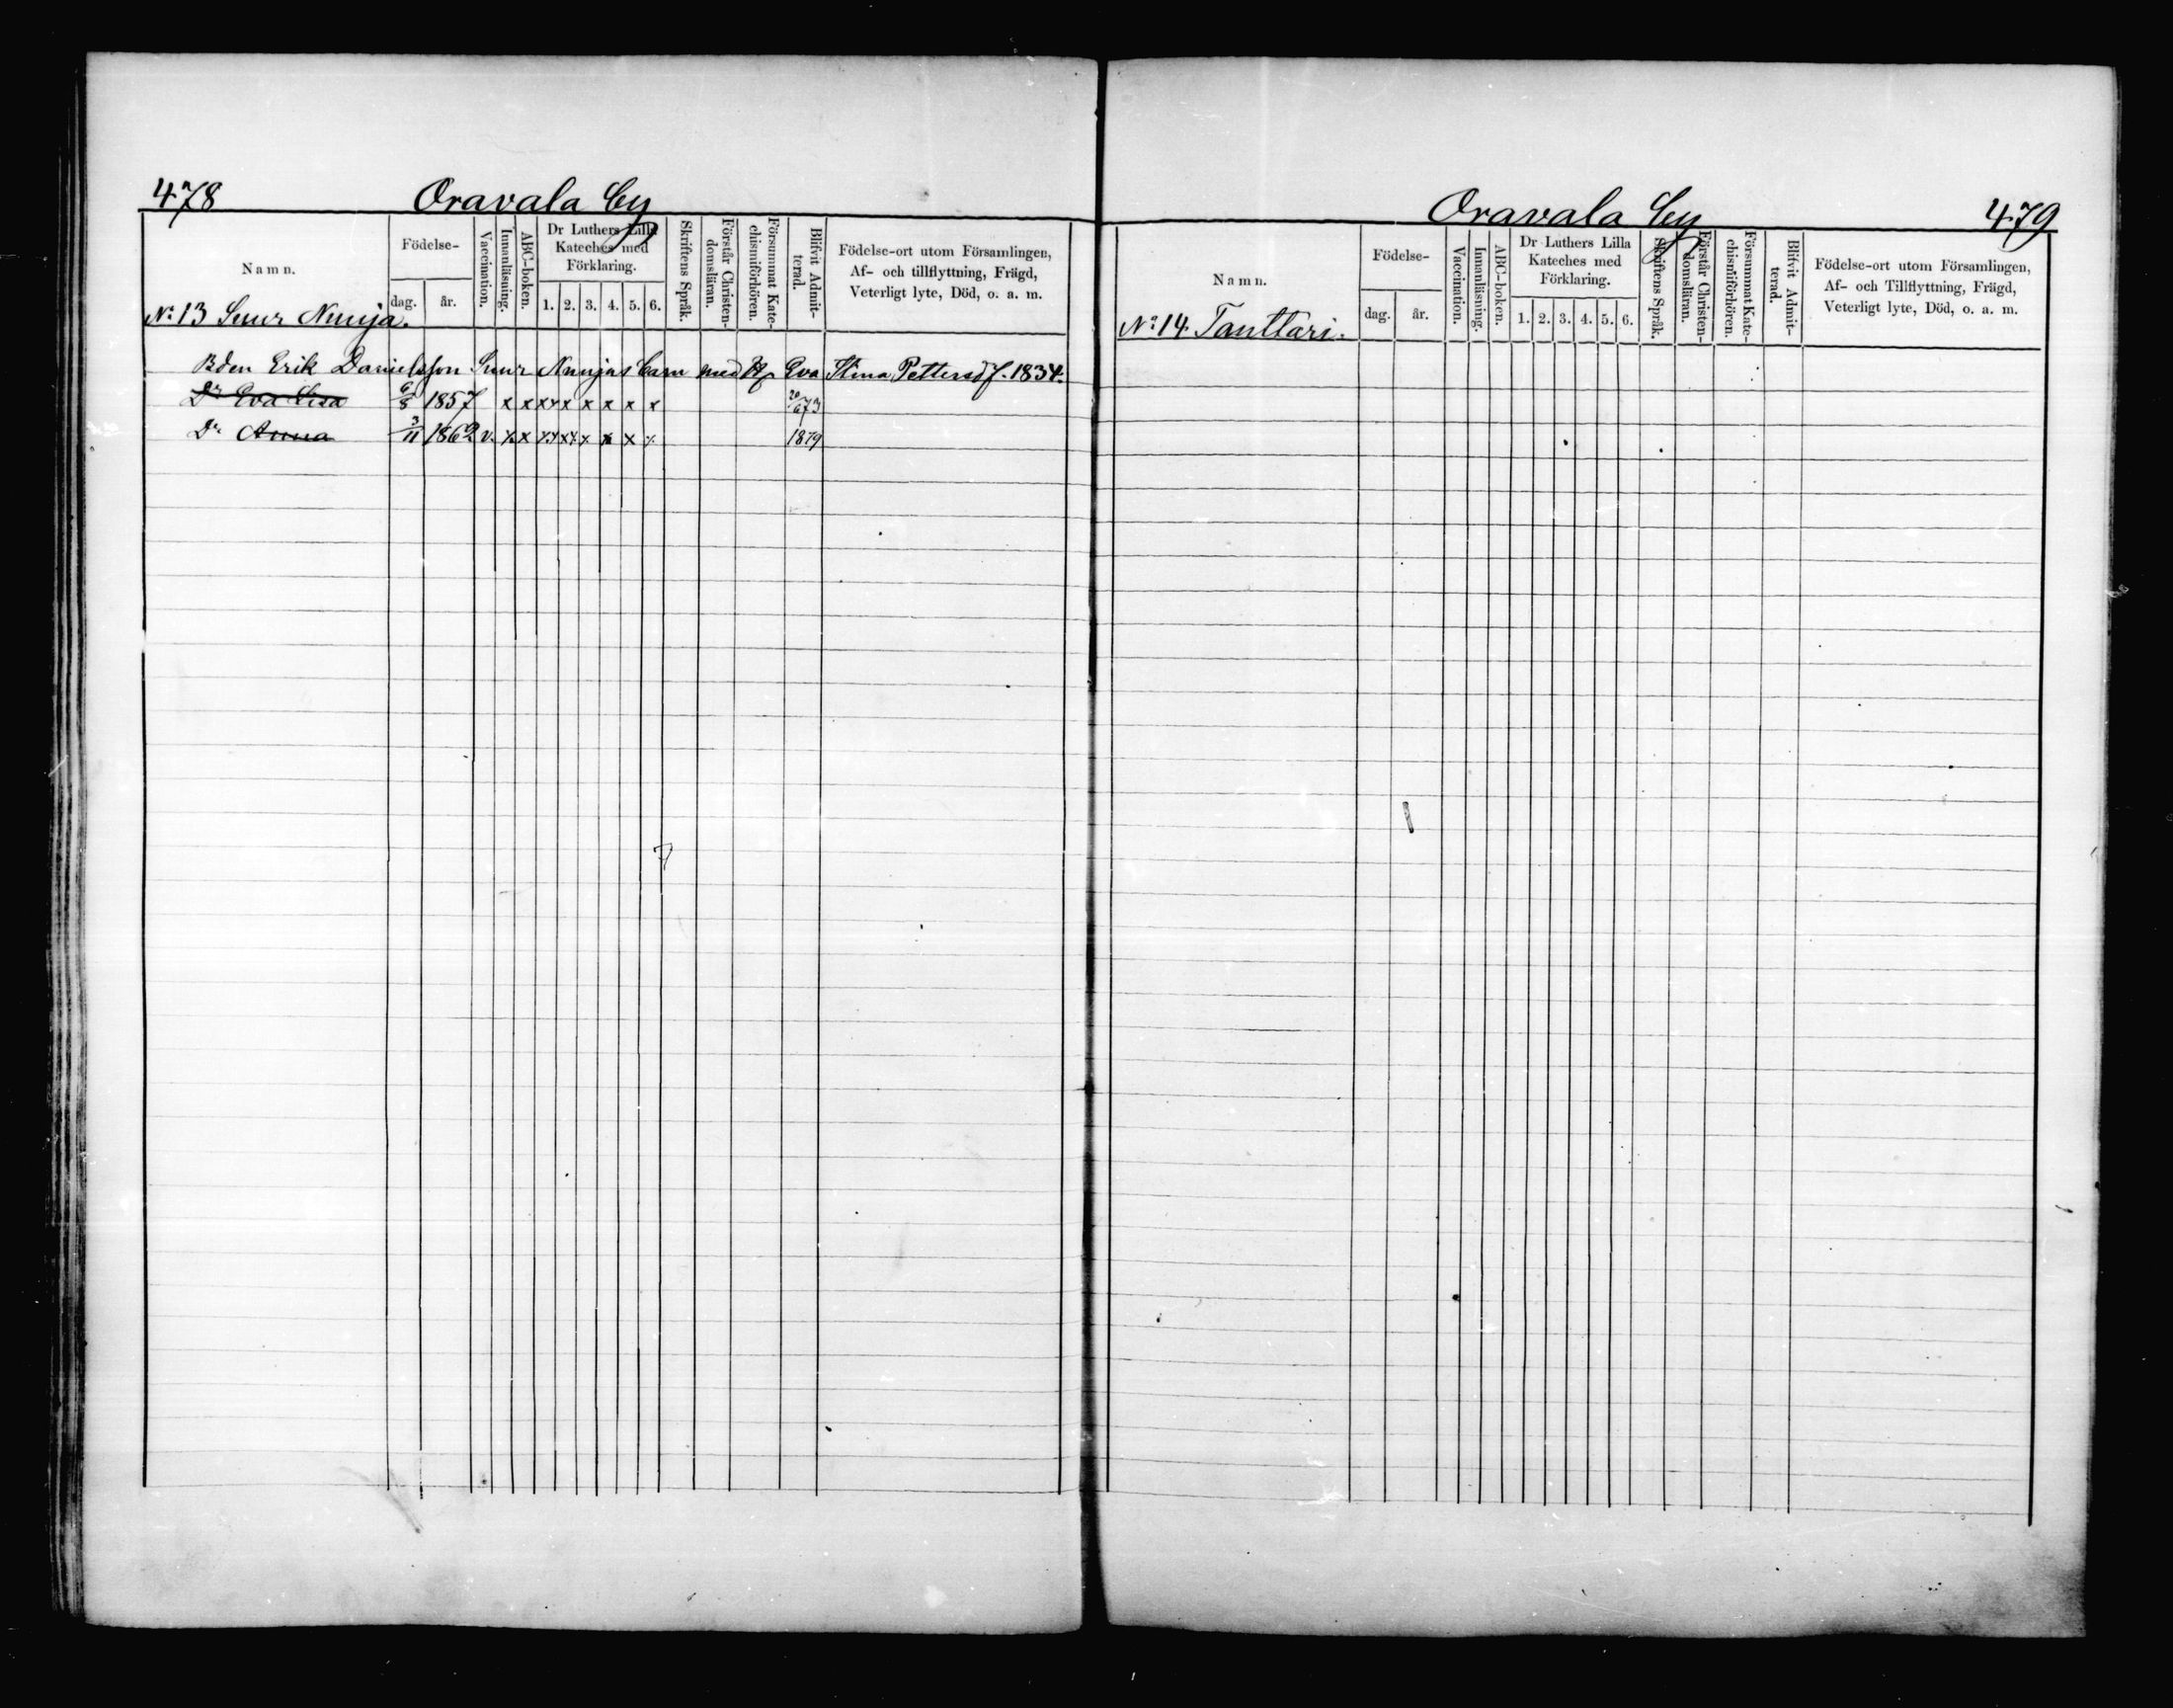 478 Oravala by
Namn.
Födelse-
dag. år.
Vaccination.
Innanläsning.
ABC-boken.
Dr Luthers Lilla
Kateches med
Förklaring.
1. 2. 3. 4. 5. 6.
Skriftens Språk.
Förstår Christen-
domsläran.
Försummat Kate-
chismiförhören.
Blifvit Admit-
terad.
Födelse-ort utom Församlingen,
Af- och tillflyttning, Frägd,
Veterligt lyte, Död, o. a. m.
No 13 Suur Nuuja.
Bden Erik Danielsson Suur Nuujas barn med H Eva Stina Pettersd f. 1834.
Dr Eva Lisa 6/8 1857 x x x x x x x x x 20/6 73
Dr Anna 3/11 1862 v. x x x x x x x x x x 1879
Oravala by 479
Namn.
Födelse-
dag. år.
Vaccination.
Innanläsning.
ABC-boken.
Dr Luthers Lilla
Kateches med
Förklaring.
1. 2. 3. 4. 5. 6.
Skriftens Språk.
Förstår Christen-
domsläran.
Försummat Kate-
chismiförhören.
Blifvit Admit-
terad.
Födelse-ort utom Församlingen,
Af- och Tillflyttning, Frägd,
Veterligt lyte, Död, o. a. m.
No 14. Tanttari.